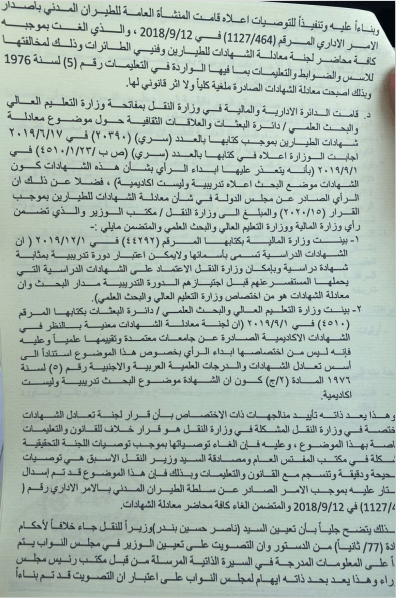 وبناءاً عليه وتنفيذاً للتوصيات اعلاه قامت المنشأة العامة للطيران المدني بأصدار
الامر الاداري المرقم (1127/464) في 2018/9/12 ، والذي الغت بموجبه
كافة محاضر لجنة معادلة الشهادات للطيارين وفنيي الطائرات وذلك لمخالفتها
للاسس والضوابط والتعليمات بما فيها الواردة في التعليمات رقم (5) لسنة 1976
وبذلك اصبحت معادلة الشهادات الصادرة ملغية كلياً ولا اثر قانوني لها.
د. قامت الدائرة الادارية والمالية في وزارة النقل بمفاتحة وزارة التعليم العالي
والبحث العلمي / دائرة البعثات والعلاقات الثقافية حول موضوع معادلة
شهادات الطيارين بموجب كتابها بالعدد (سري) (٢٠٣٩٠) في ٢٠١٩/٦/١٧
اجابت الوزارة اعلاه في كتابها بالعدد (سري) (ص ب /٤٥١٠/١/٢٣) في
٢٠١٩/٩/١ (بأنه يتعذر عليها ابداء الرأي بشأن هذه الشهادات كون
الشهادات موضع البحث اعلاه تدريبية وليست اكاديمية) ، فضلا عن ذلك ان
الرأي الصادر عن مجلس الدولة في شأن معادلة الشهادات للطيارين بموجب
القرار (٢٠٢٠/١٥) والمبلغ الى وزارة النقل / مكتب الوزير والذي تضمن
رأي وزارة المالية ووزارة التعليم العالي والبحث العلمي والمتضمن مايلي :-
١- بينت وزارة المالية بكتابها المرقم (٤٤٢٩٢) في ٢٠١٩/١٢/١ ( ان
الشهادات الدراسية تسمى بأسمائها ولايمكن اعتبار دورة تدريبية بمثابة
شهادة دراسية وبإمكان وزارة النقل الاعتماد على الشهادات الدراسية التي
يحملها المستفسر عنهم قبل اجتيازهم الدورة التدريبية مدار البحث وان
معادلة الشهادات هو من اختصاص وزارة التعليم العالي والبحث العلمي).
٢- بينت وزارة التعليم العالي والبحث العلمي / دائرة البعثات بكتابها المرقم
(٤٥١٠) في ٢٠١٩/٩/١ (ان لجنة معادلة الشهادات معنية بالنظر في
الشهادات الاكاديمية الصادرة عن جامعات معتمدة وتقييمها علمياً وعليه
فإنه ليس من اختصاصها ابداء الرأي بخصوص هذا الموضوع استناداً الى
اسس تعادل الشهادات والدرجات العلمية العربية والاجنبية رقم (٥) لسنة
١٩٧٦ المادة (٢/ج) كون ان الشهادة موضوع البحث تدريبية وليست
اكاديمية.
وهذا يعد ذاته تأييد من الجهات ذات الاختصاص بأن قرار لجنة تعادل الشهادات
ختصة في وزارة النقل المشكلة في وزارة النقل هو قرار خلاف للقانون والتعليمات
اصة بهذا الموضوع ، وعليه فإن الغاء توصياتها بموجب توصيات اللجنة التحقيقية
شكلة في مكتب المفتش العام ومصادقة السيد وزير النقل الاسبق هي توصيات
حيحة ودقيقة وتنسجم مع القانون والتعليمات وبذلك فإن هذا الموضوع قد تم إسدال
ستار عليه بموجب الامر الصادر عن سلطة الطيران المدني بالامر الاداري رقم (
1127/4) في 2018/9/12 والمتضمن الغاء كافة محاضر معادلة الشهادات.
بذلك يتضح جلياً بأن تعيين السيد (ناصر حسين بندر) وزيراً للنقل جاء خلافاً لأحكام
ادة (77/ ثانيا) من الدستور وان التصويت على تعيين الوزير في مجلس النواب يتم
اً على المعلومات المدرجة في السيرة الذاتية المرسلة من قبل مكتب رئيس مجلس
راء وهذا يعد بحد ذاته ايهام لمجلس النواب على اعتبار ان التصويت قد تم بناءاً